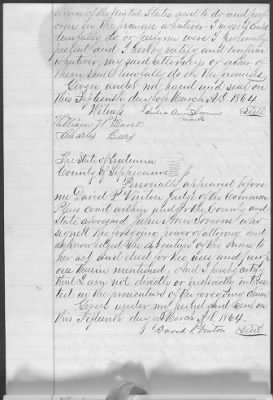 service of the United States and to do and perform
any in the premises whatever I myself could
lawfully do or perform were I personally
present and I hereby ratify and confirm
whatever my said attorneys or either of
them shall lawfully do in the premises
Given under my hand and seal on
this Fifteenth day of March A.D. 1864
Witness
mark
William
Charles
The State of Indiana
County of Tippecanoe
Personally appeared before
me David P Vinton Judge of the Common
Pleas Court within and for the County and
State aforesaid Julia Ann who
signed the foregoing power of attorney and
acknowledged the execution of the same to be
her act and deed for the uses and purp
oses therein mentioned, and I hereby certify
that I am not directly or indirectly interes
ted in the prosecution of the foregoing claim
Given under my hand and seal on
this Fifteenth day of March A.D. 1864
David P Vinton